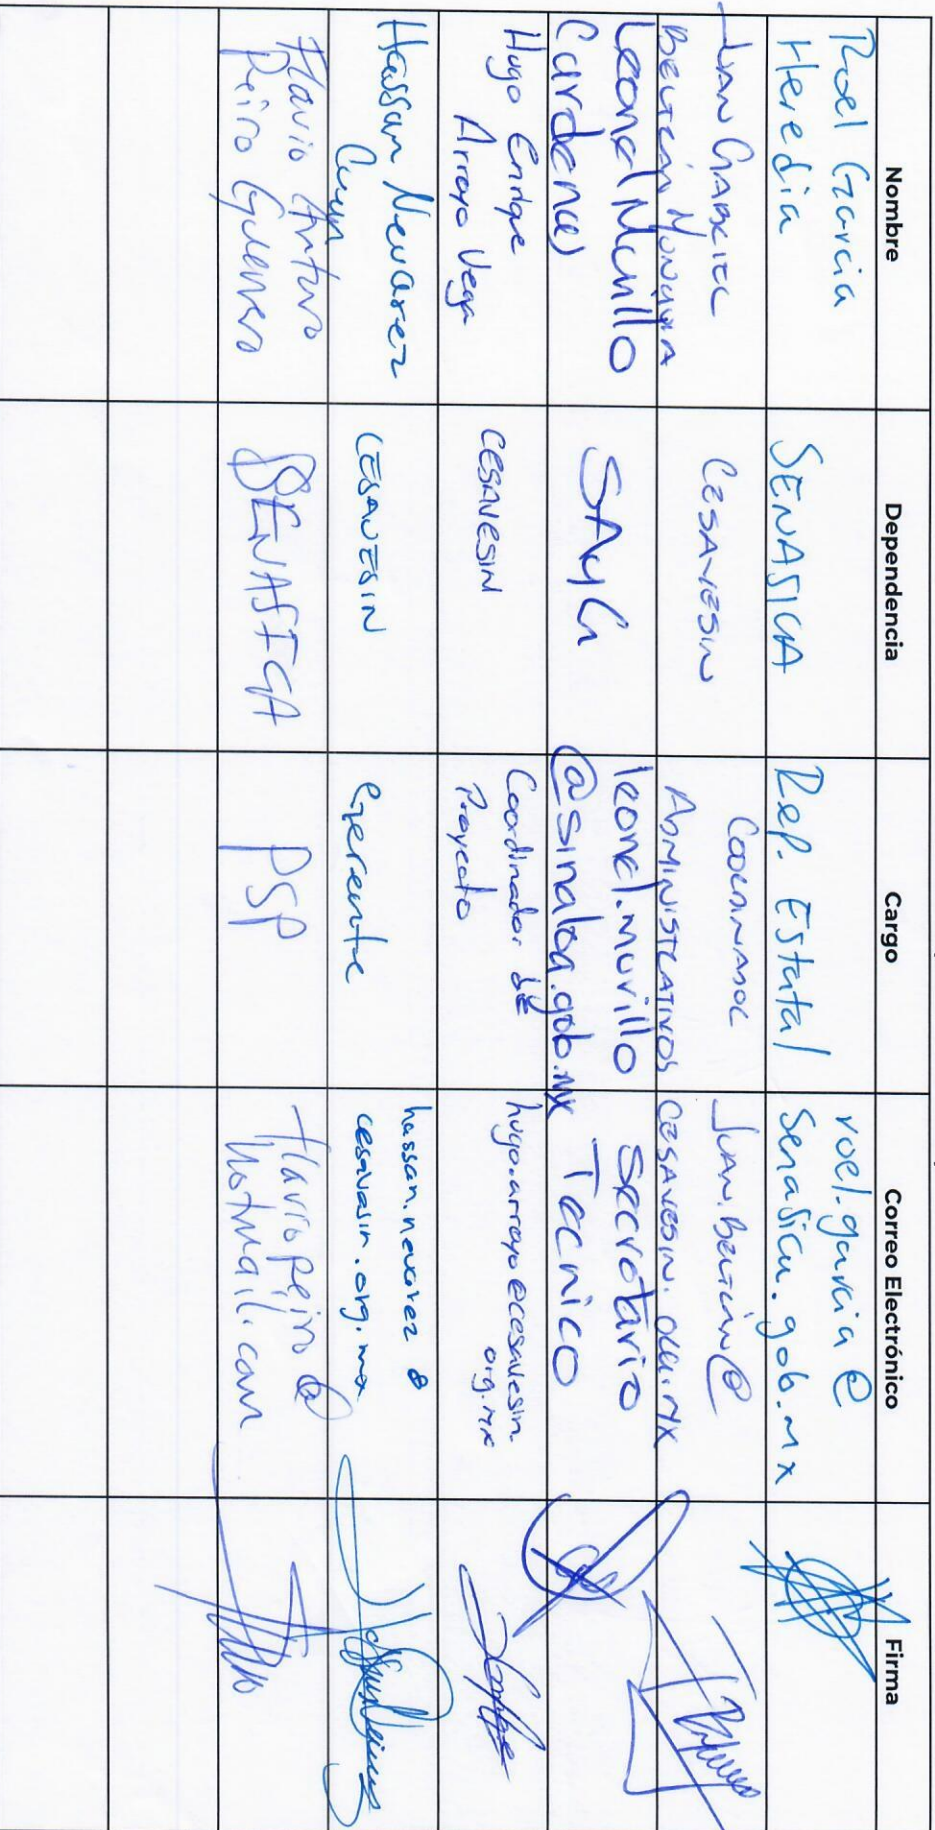 Nombre
Dependencia
Cargo
Correo Electrónico
Firma
Roel Garcia
Heredia
SENASICA
Rep. Estatal
roel.garcia@
senasica.gob.mx
Juan Gabriel
Beltrán Monjura
CESAVESIN
Coordinador
Administrativos
Juan.Beltran@
CESAVESIN.ORG.MX
Leonel Murillo
Cardenas
SAyG
leonel.murillo
@sinaloa.gob.mx
Secretario
Tecnico
Hugo Enrique
Arroyo Vega
CESAVESIN
Coordinador de
Proyecto
hugo.arroyo@cesavesin.
org.mx
Hassan Nevarez
CESAVESIN
Gerente
hassan.nevarez@
cesavesin.org.mx
Flavio Arturo
Peiro Guerrero
SENASICA
PSP
flaviopeiro@
hotmail.com